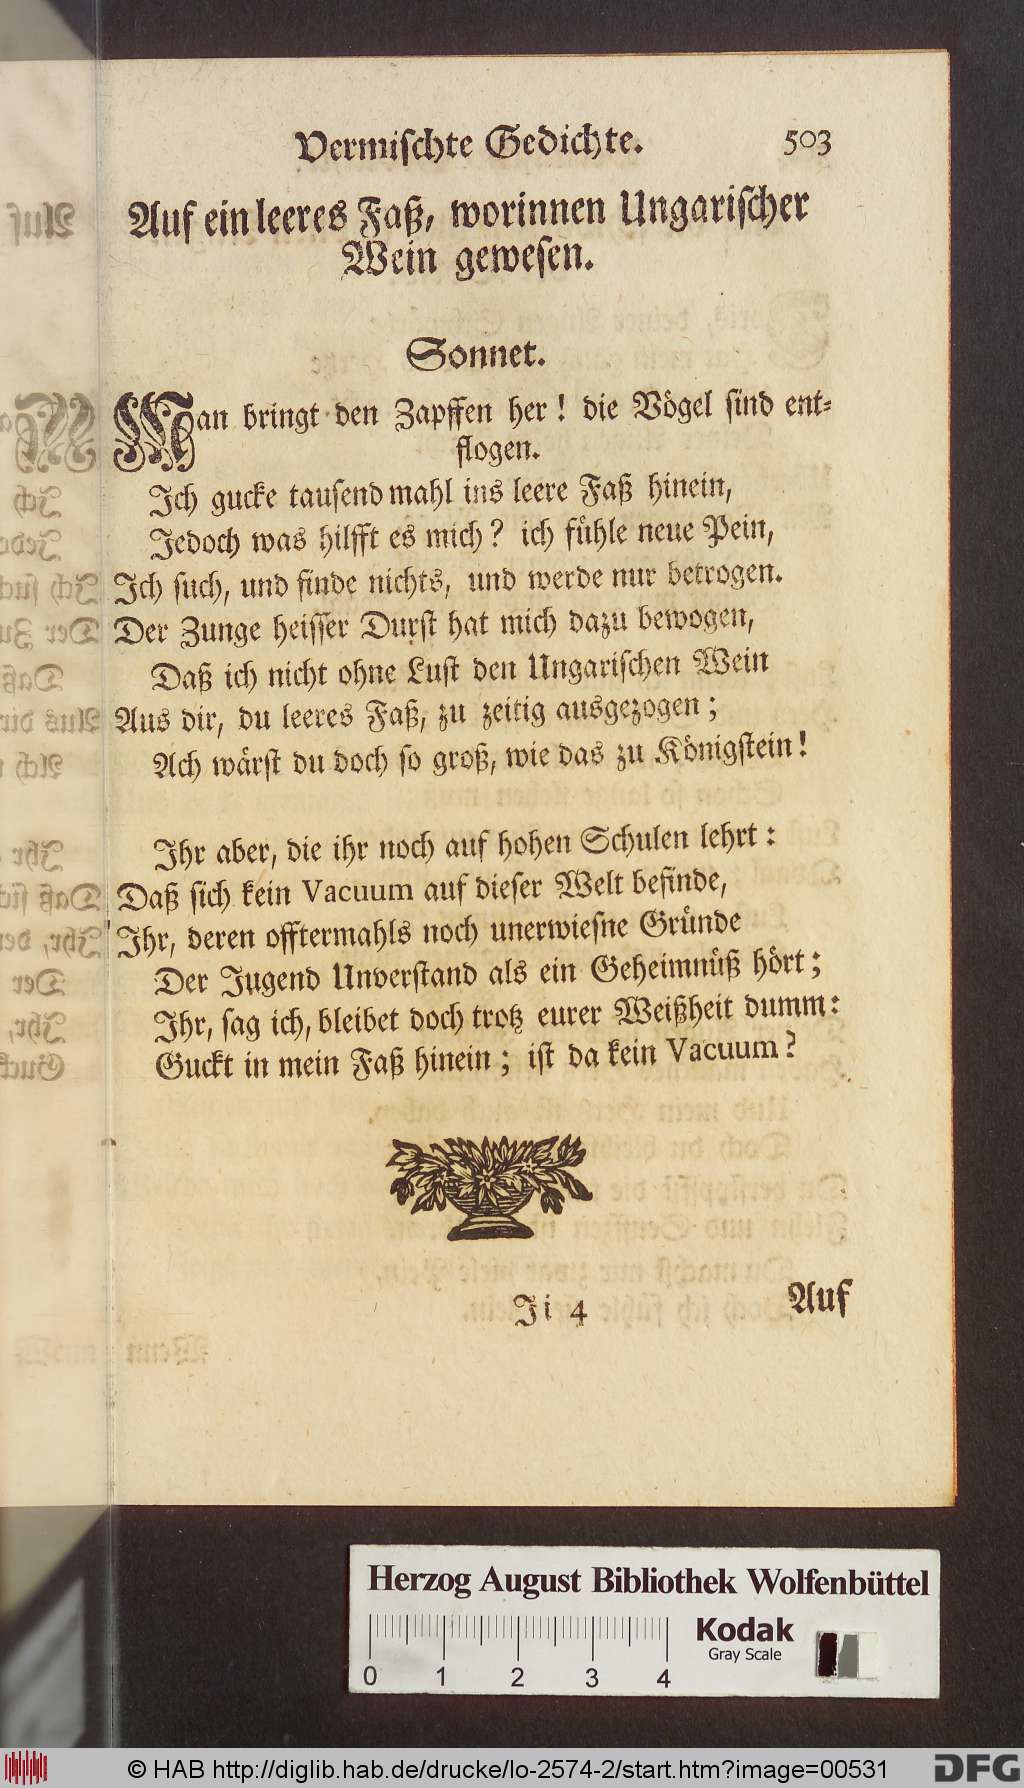 Vermischte Gedichte. 503
Auf ein leeres Faß, worinnen Ungarischer
Wein gewesen.
Sonnet.
Man bringt den Zapffen her! die Vögel sind ent-
flogen.
Ich gucke tausend mahl ins leere Faß hinein,
Jedoch was hilfft es mich? ich fühle neue Pein,
Ich such, und finde nichts, und werde nur betrogen.
Der Zunge heisser Durst hat mich dazu bewogen,
Daß ich nicht ohne Lust den Ungarischen Wein
Aus dir, du leeres Faß, zu zeitig ausgezogen;
Ach wärst du doch so groß, wie das zu Königstein!
Ihr aber, die ihr noch auf hohen Schulen lehrt:
Daß sich kein Vacuum auf dieser Welt befinde,
Ihr, deren offtermahls noch unerwiesne Gründe
Der Jugend Unverstand als ein Geheimnüß hört;
Ihr, sag ich, bleibet doch trotz eurer Weißheit dumm:
Guckt in mein Faß hinein; ist da kein Vacuum?
Ji 4 Auf
Herzog August Bibliothek Wolfenbüttel
Kodak
Gray Scale
0 1 2 3 4
© HAB http://diglib.hab.de/drucke/lo-2574-2/start.htm?image=00531
DFG